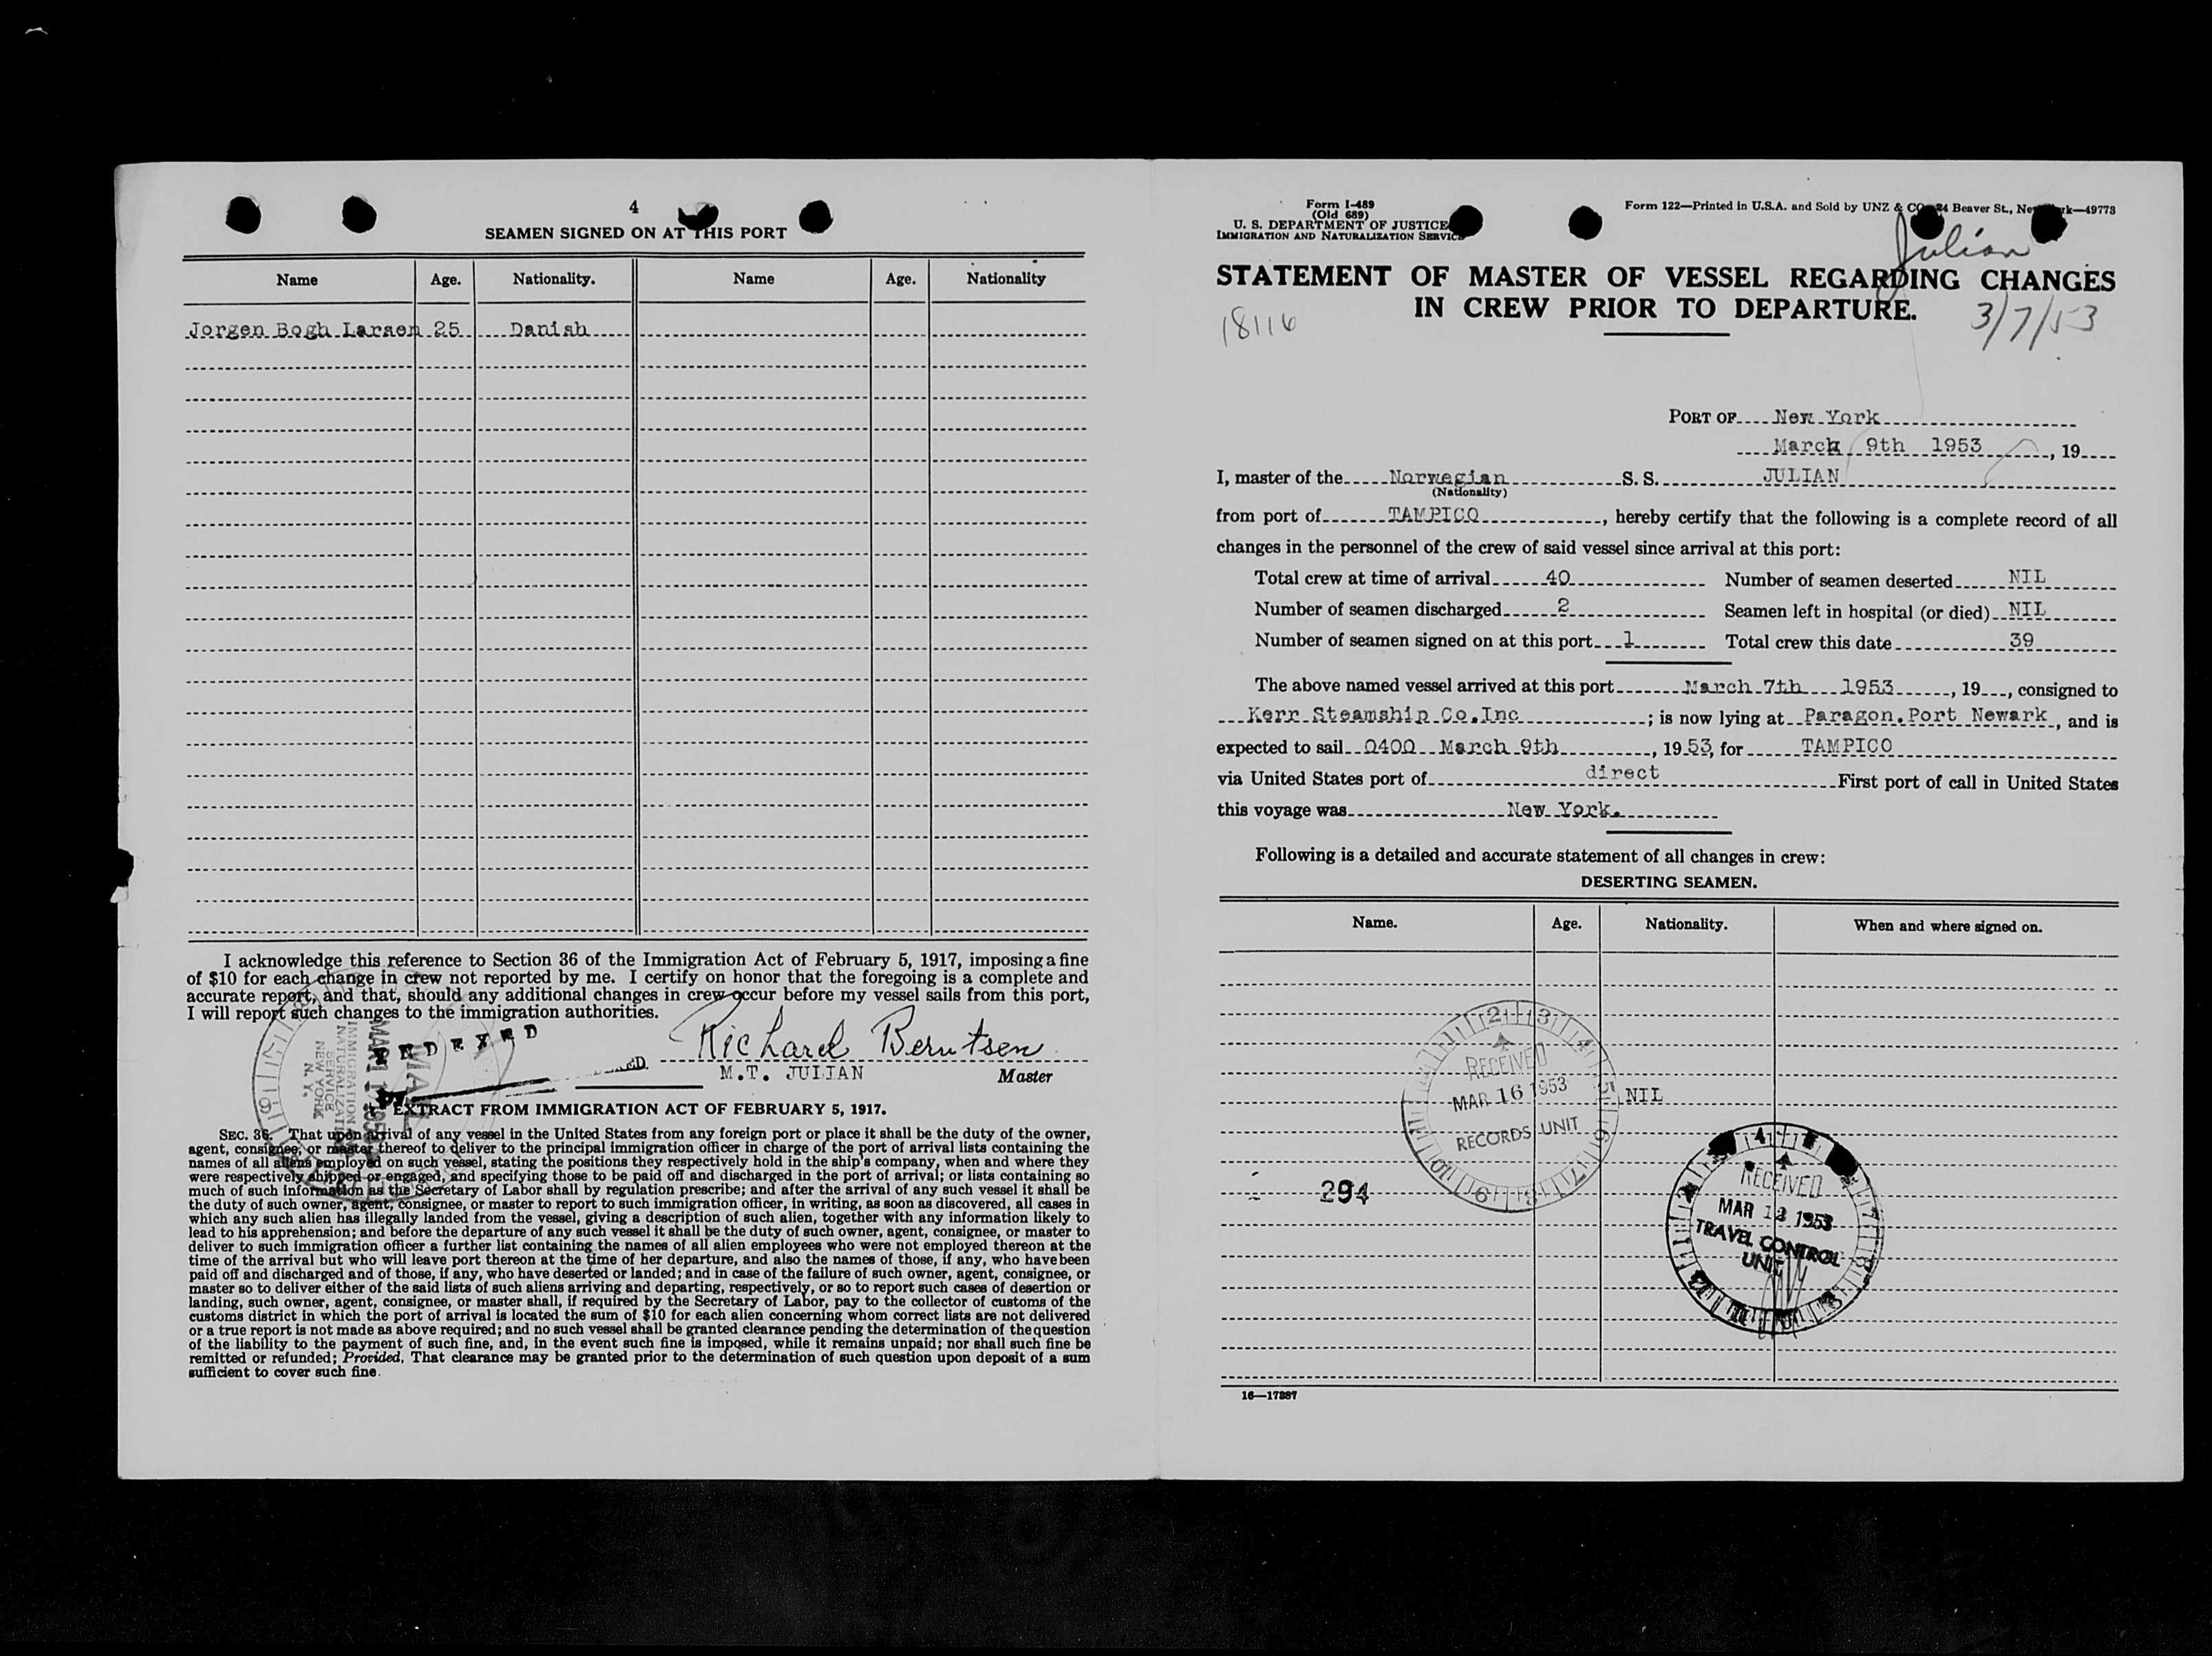 4
SEAMEN SIGNED ON AT THIS PORT
Name Age. Nationality. Name Age. Nationality
Jorgen Bogh Larsen 25 Danish
I acknowledge this reference to Section 36 of the Immigration Act of February 5, 1917, imposing a fine
of $10 for each change in crew not reported by me. I certify on honor that the foregoing is a complete and
accurate report, and that, should any additional changes in crew occur before my vessel sails from this port,
I will report such changes to the immigration authorities.
INDEXED
Richard Berntsen
M.T. JULIAN Master
MAIL
IMMIGRATION
NATURALIZATION
SERVICE
NEW YORK
N. Y.
EXTRACT FROM IMMIGRATION ACT OF FEBRUARY 5, 1917.
SEC. 36. That upon arrival of any vessel in the United States from any foreign port or place it shall be the duty of the owner,
agent, consignee, or master thereof to deliver to the principal immigration officer in charge of the port of arrival lists containing the
names of all aliens employed on such vessel, stating the positions they respectively hold in the ship's company, when and where they
were respectively shipped or engaged, and specifying those to be paid off and discharged in the port of arrival; or lists containing so
much of such information as the Secretary of Labor shall by regulation prescribe; and after the arrival of any such vessel it shall be
the duty of such owner, agent, consignee, or master to report to such immigration officer, in writing, as soon as discovered, all cases in
which any such alien has illegally landed from the vessel, giving a description of such alien, together with any information likely to
lead to his apprehension; and before the departure of any such vessel it shall be the duty of such owner, agent, consignee, or master to
deliver to such immigration officer a further list containing the names of all alien employees who were not employed thereon at the
time of the arrival but who will leave port thereon at the time of her departure, and also the names of those, if any, who have been
paid off and discharged and of those, if any, who have deserted or landed; and in case of the failure of such owner, agent, consignee, or
master so to deliver either of the said lists of such aliens arriving and departing, respectively, or so to report such cases of desertion or
landing, such owner, agent, consignee, or master shall, if required by the Secretary of Labor, pay to the collector of customs of the
customs district in which the port of arrival is located the sum of $10 for each alien concerning whom correct lists are not delivered
or a true report is not made as above required; and no such vessel shall be granted clearance pending the determination of the question
of the liability to the payment of such fine, and, in the event such fine is imposed, while it remains unpaid; nor shall such fine be
remitted or refunded; Provided, That clearance may be granted prior to the determination of such question upon deposit of a sum
sufficient to cover such fine.
Form I-489
(Old 689)
U. S. DEPARTMENT OF JUSTICE
IMMIGRATION AND NATURALIZATION SERVICE
Form 122—Printed in U.S.A. and Sold by UNZ & CO 24 Beaver St., New York—49773
Julian
STATEMENT OF MASTER OF VESSEL REGARDING CHANGES
IN CREW PRIOR TO DEPARTURE.
18116
3/7/53
PORT OF New York
March 9th 1953, 19
I, master of the Norwegian S. S. JULIAN
(Nationality)
from port of TAMPICO, hereby certify that the following is a complete record of all
changes in the personnel of the crew of said vessel since arrival at this port:
Total crew at time of arrival 40 Number of seamen deserted NIL
Number of seamen discharged 2 Seamen left in hospital (or died) NIL
Number of seamen signed on at this port 1 Total crew this date 39
The above named vessel arrived at this port March 7th 1953, 19, consigned to
Kerr Steamship Co.Inc; is now lying at Paragon.Port Newark, and is
expected to sail 0400 March 9th, 1953, for TAMPICO
via United States port of direct First port of call in United States
this voyage was New York.
Following is a detailed and accurate statement of all changes in crew:
DESERTING SEAMEN.
Name. Age. Nationality. When and where signed on.
RECEIVED
MAR 16 1953
RECORDS UNIT
NIL
294
RECEIVED
MAR 12 1953
TRAVEL CONTROL
UNIT
16—17887